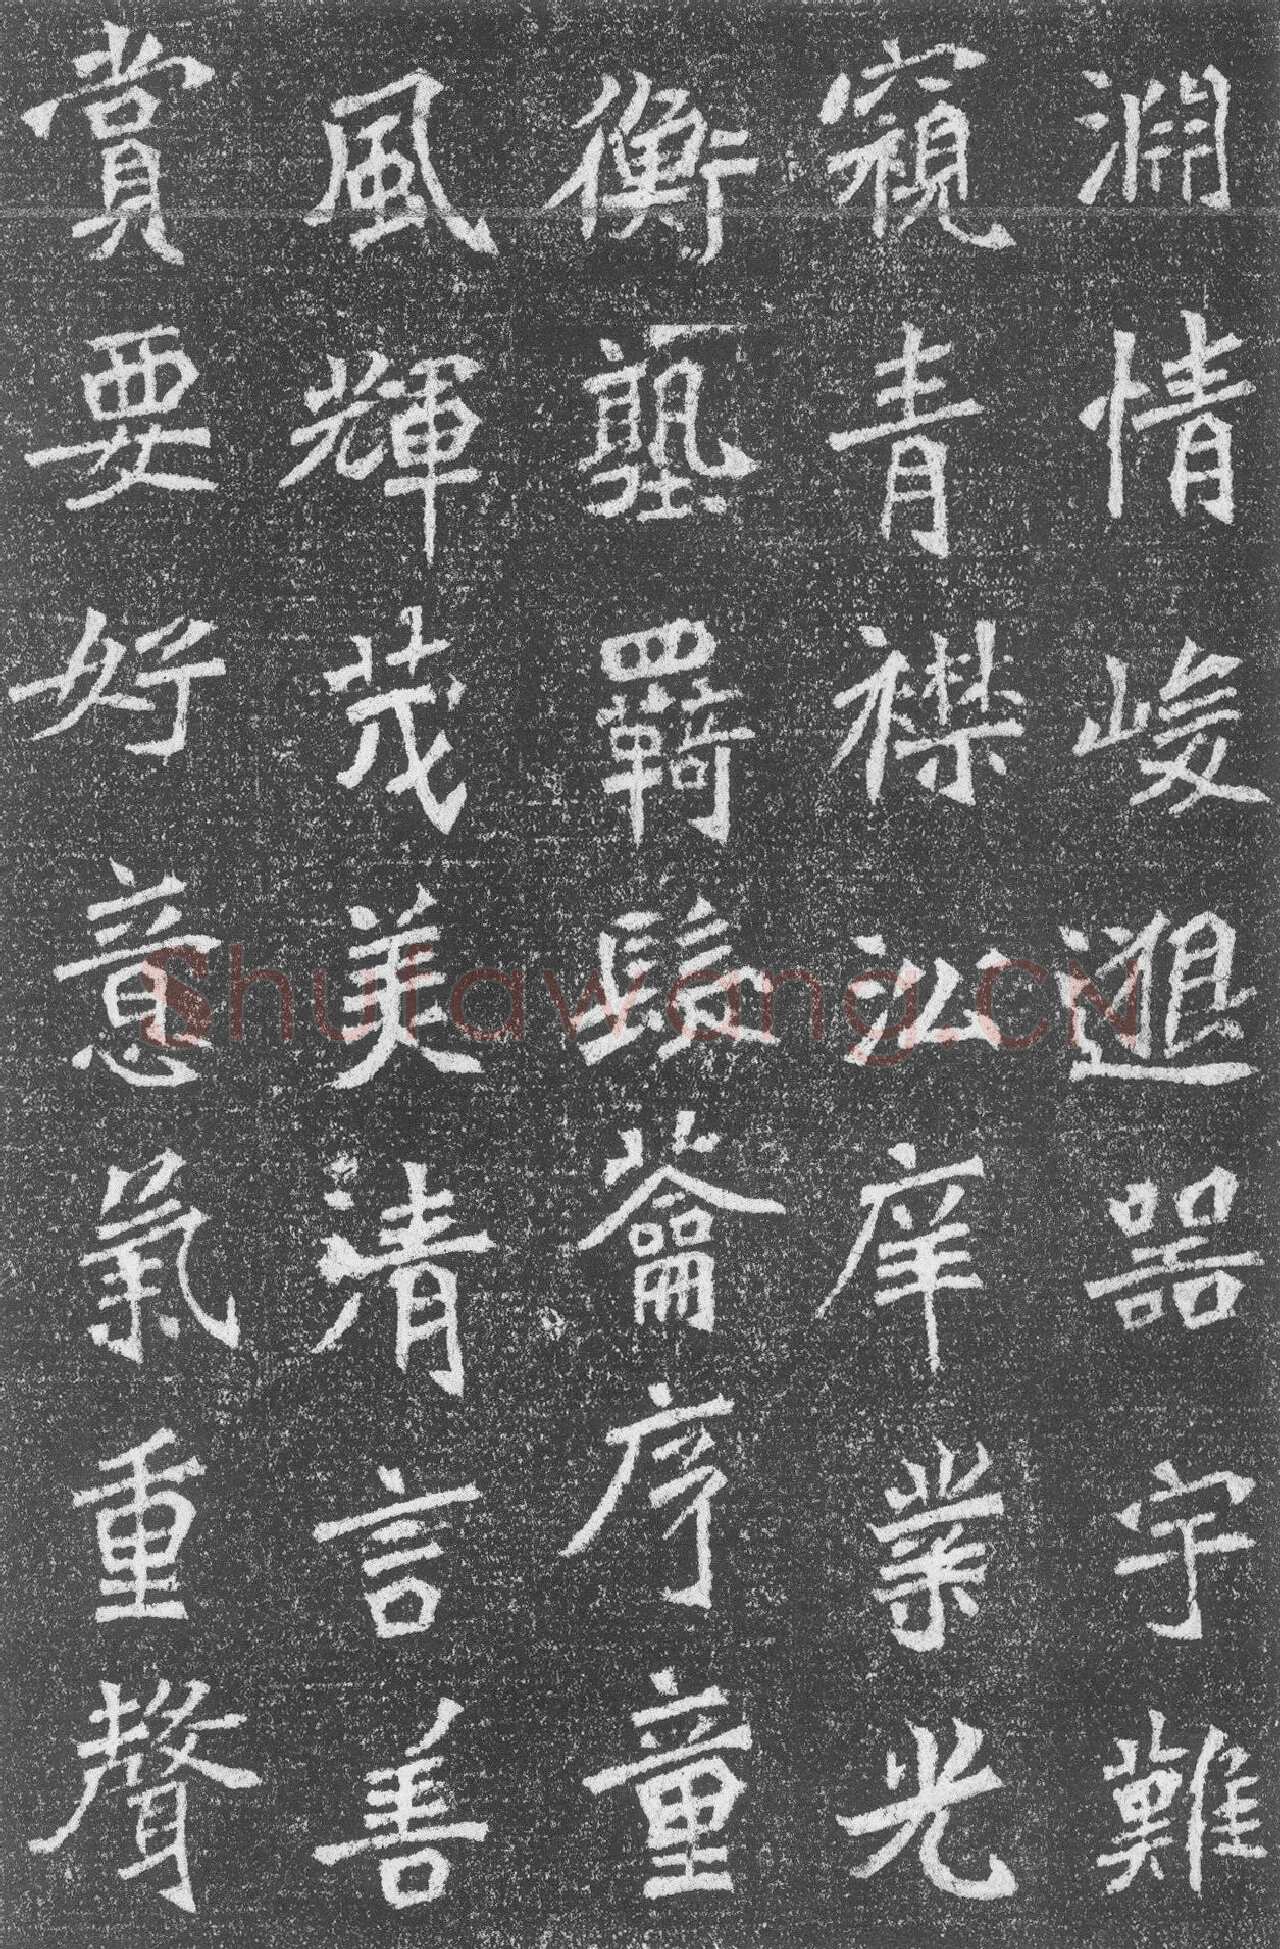 淵情峻遐器宇難
窺青襟沁庠業光
衡藝羈髫蘥序童
風輝茂美清言善
賞要好意氣重聲
Shufawang.CN